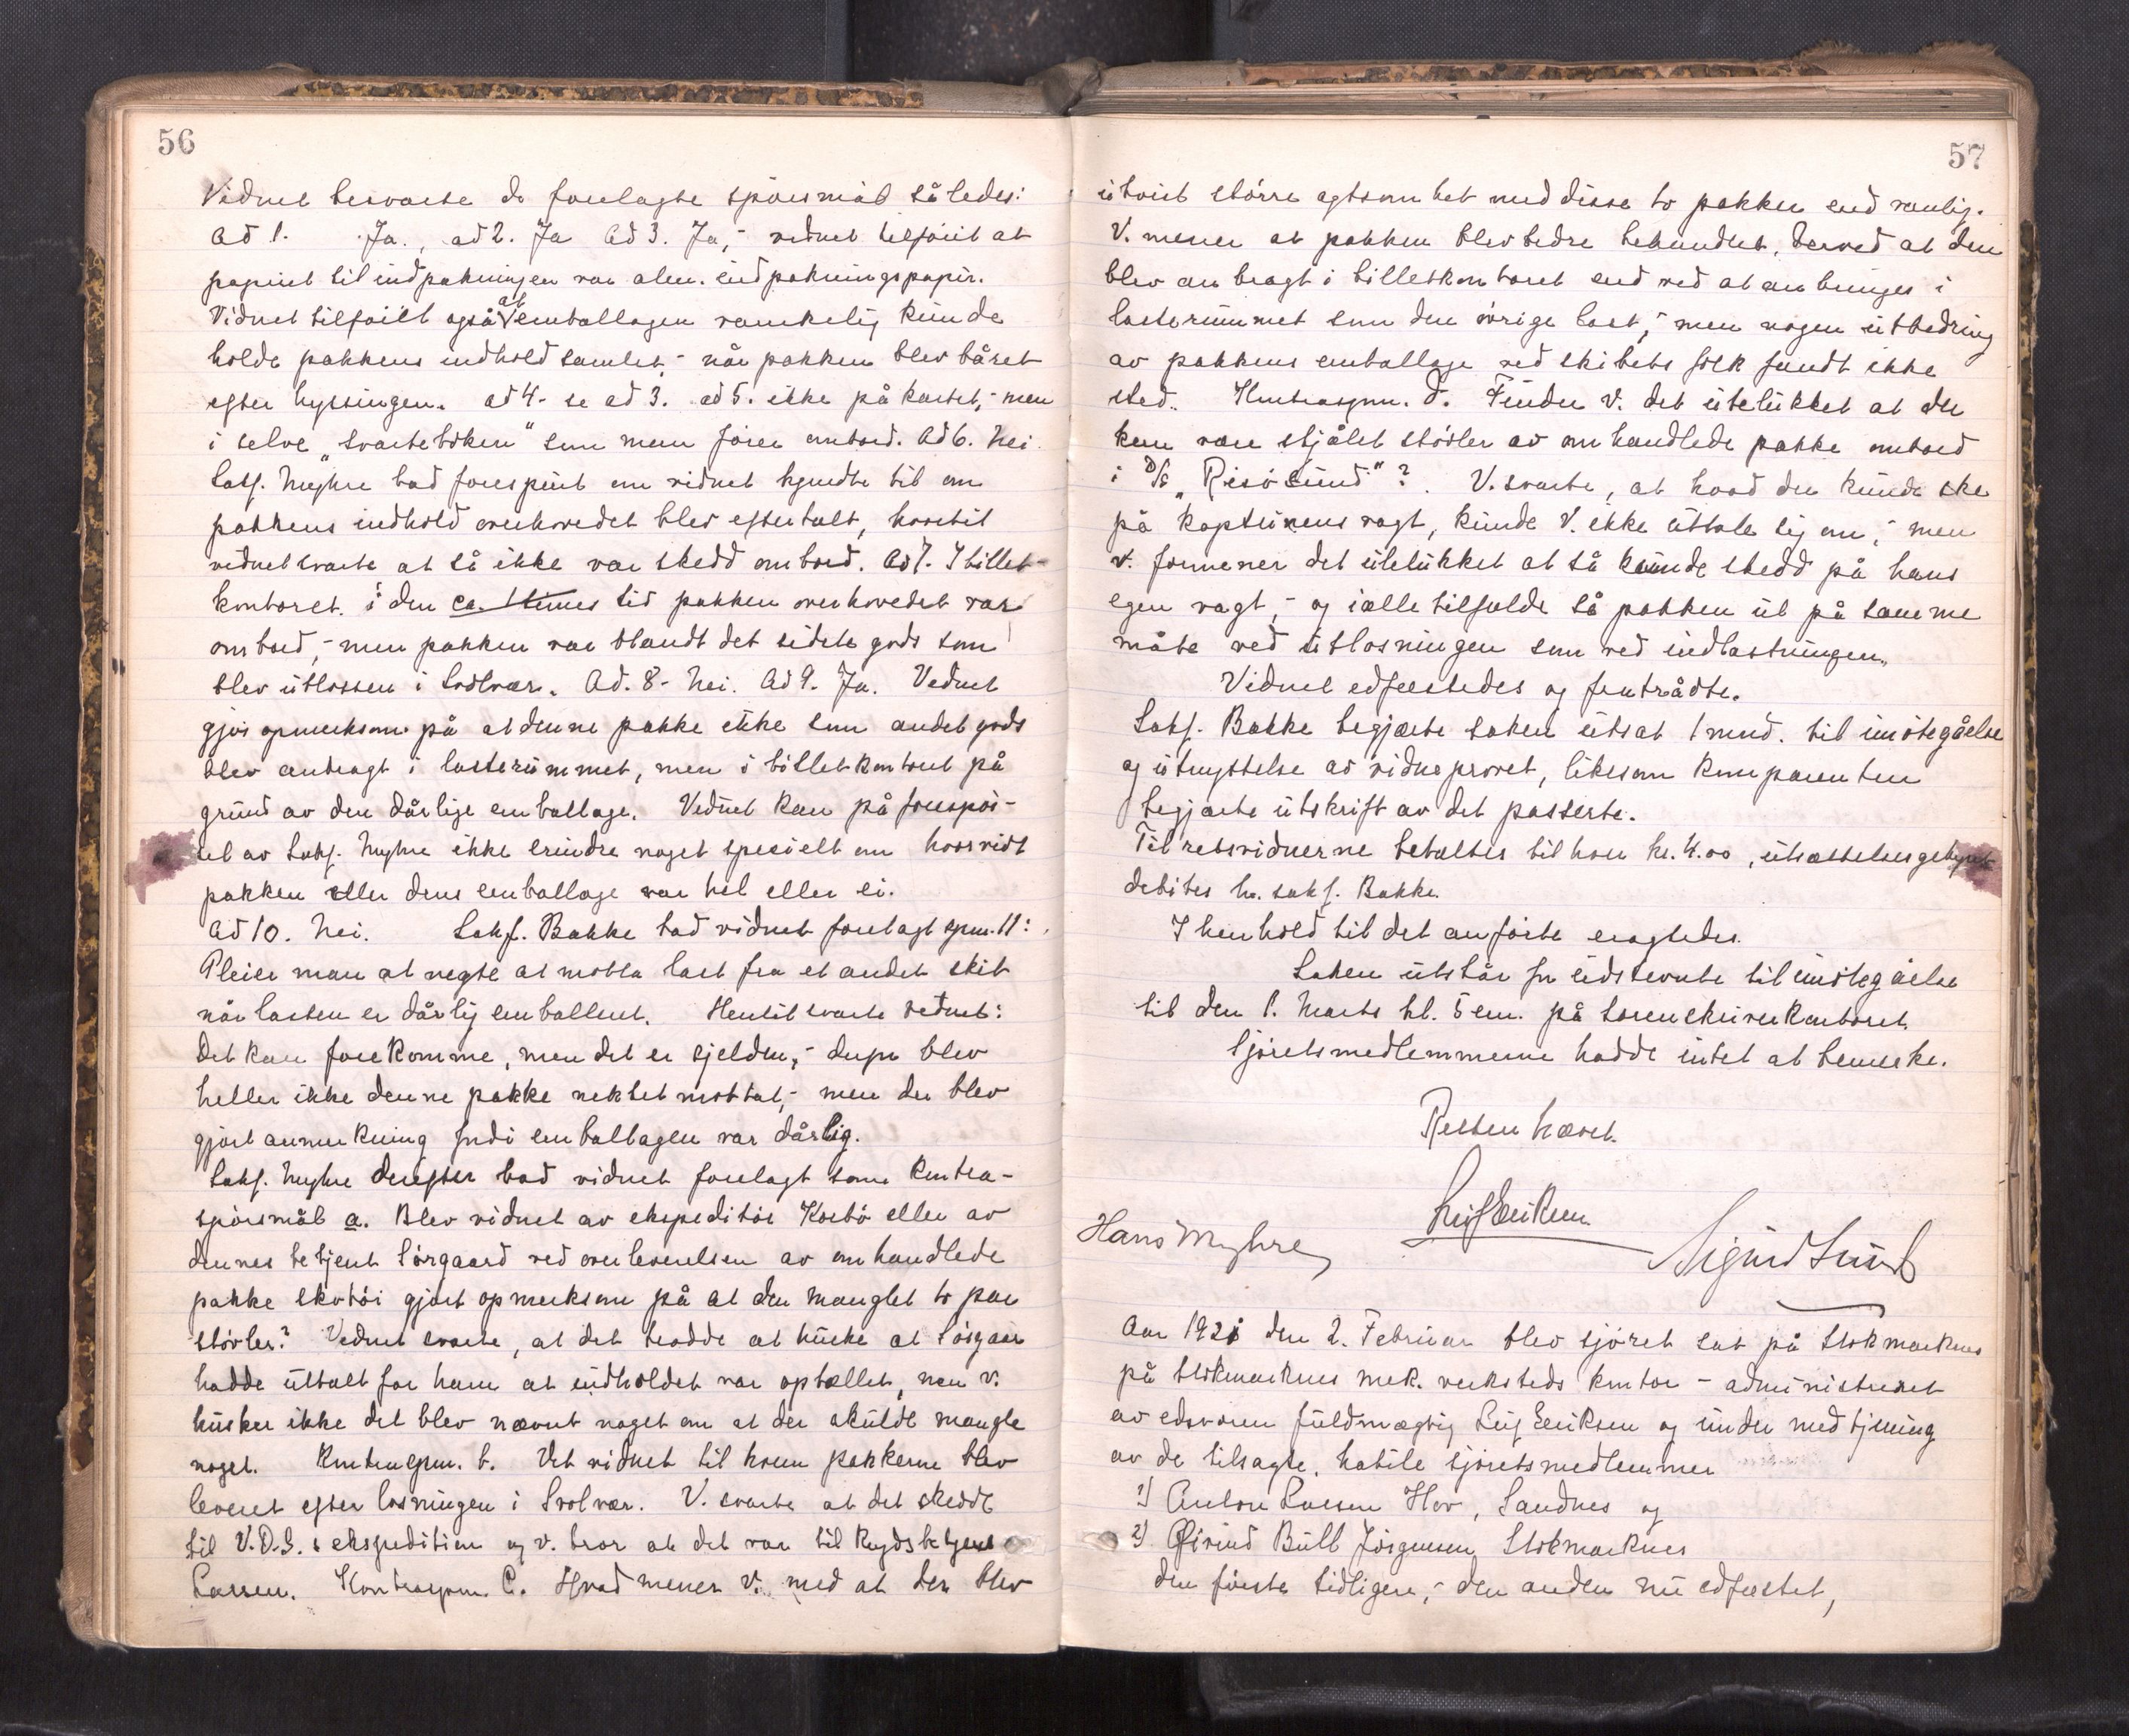 56
Vidnet besvarte de forelagte spörsmål således:
Ad 1. Ja., ad 2. Ja Ad 3. Ja,- vidnet tilföiet at
papiret til indpakningen var alm. indpakningspapir.
Vidnet tilföiet også at emballagen vanskelig kunde
holde pakkens indhold samlet,- når pakken blev båret
efter hyssingen. ad 4- se ad 3. ad 5. ikke på kartet,- men
i selve "svarteboken" som man förer ombord. Ad 6. Nei.
Sakf. Myhre bad forespurt om vidnet kjendte til om
pakkens indhold overhovedet blev eftertalt, hvortil
vidnet svarte at så ikke var skedd ombord. Ad 7. I billet-
kontoret. i den ca. 1 times tid pakken overhovedet var
ombord,- men pakken var blandt det sidste gods som
blev utlossen i Svolvær. Ad. 8- Nei. Ad 9. Ja. Vidnet
gjör opmerksom på at denne pakke ikke som andet gods
blev anbragt i lasterummet, men i billetkontoret på
grund av den dårlige emballage. Vidnet kan på forespör-
sel av Sakf. Myhre ikke erindre noget specielt om hvorvidt
pakken eller dens emballage var hel eller ei.
Ad 10. Nei. Sakf. Bakke bad vidnet forelagt spm. 11:
Pleier man at negte at motta last fra et andet skib
når lasten er dårlig emballert. Hertil svarte vidnet:
Det kan forekomme, men det er sjelden,- derfor blev
heller ikke denne pakke nektet mottat,- men der blev
gjort anmerkning fordi emballagen var dårlig.
Sakf. Myhre derefter bad vidnet forelagt som kontra-
spörsmål a. Blev vidnet av ekspeditör Korbö eller av
dennes betjent Sörgaard ved overleverelsen av omhandlede
pakke skotöi gjort opmerksom på at der manglet to par
stövler? Vidnet svarte, at det trodde at huske at Sörgaar
hadde uttalt for ham at indholdet var optællet, men v.
husker ikke det blev nævnt noget om at der skulde mangle
noget. Kontraspm. b. Vet vidnet til hvem pakkerne blev
leveret efter losningen i Svolvær. V. svarte at det skedde
til V.D.S.s ekspedition og v. tror at det var til Rydsbetjent
Larsen. Kontraspm. C. Hvad mener v. med at der blev
57
utvist större agtsomhet med disse to pakker end vanlig.
V. mener at pakken blev bedre behandlet, derved at den
blev anbragt i billetkontoret end ved at anbringes i
lasterummet som den övrige last,- men nogen utbedring
av pakkens emballage ved skibets folk fandt ikke
sted. Kontraspm. d. Finder v. det utelukket at der
kan være stjålet stövler av omhandlede pakke ombord
i D/S "Risösund"? V. svarte, at hvad der kunde ske
på kapteinens vagt, kunde V. ikke uttale sig om,- men
v. formener det utelukket at så kunde skedd på hans
egen vagt,- og i alle tilfælde så pakken ut på samme
måte ved utlosningen som ved indlastningen.
Vidnet edfæstedes og fratrådte.
Sakf. Bakke begjærte saken utsat 1 mnd. til imötegåelse
og utnyttelse av vidneprovet, likesom komparenten
begjærte utskrift av det passerte.
Til retsvidnerne betaltes til hver kr. 4.00, utsættelsesgebyret
debites hr. sakf. Bakke.
I henhold til det anförte eragtedes.
Saken utstår for indstevnte til imötegåelse
til den 1. Marts kl. 5 em. på Sorenskriverkontoret.
Sjöretsmedlemmerne hadde intet at bemerke.
Retten hævet.
Leif Eriksen
Hans Myhre
Sigurd Lund
Aar 1921 den 2. Februar blev sjöret sat på Stokmarknes
på Stokmarknes mek. verksteds kontor - administreret
av edsvoren fuldmægtig Leif Eriksen og under medtjening
av de tilsagte, habile sjöretsmedlemmer
1) Anton Larsen Hov, Sandnes og
2) Øivind Bull Jörgensen Stokmarknes
den förste tidligere,- den anden nu edfæstet,